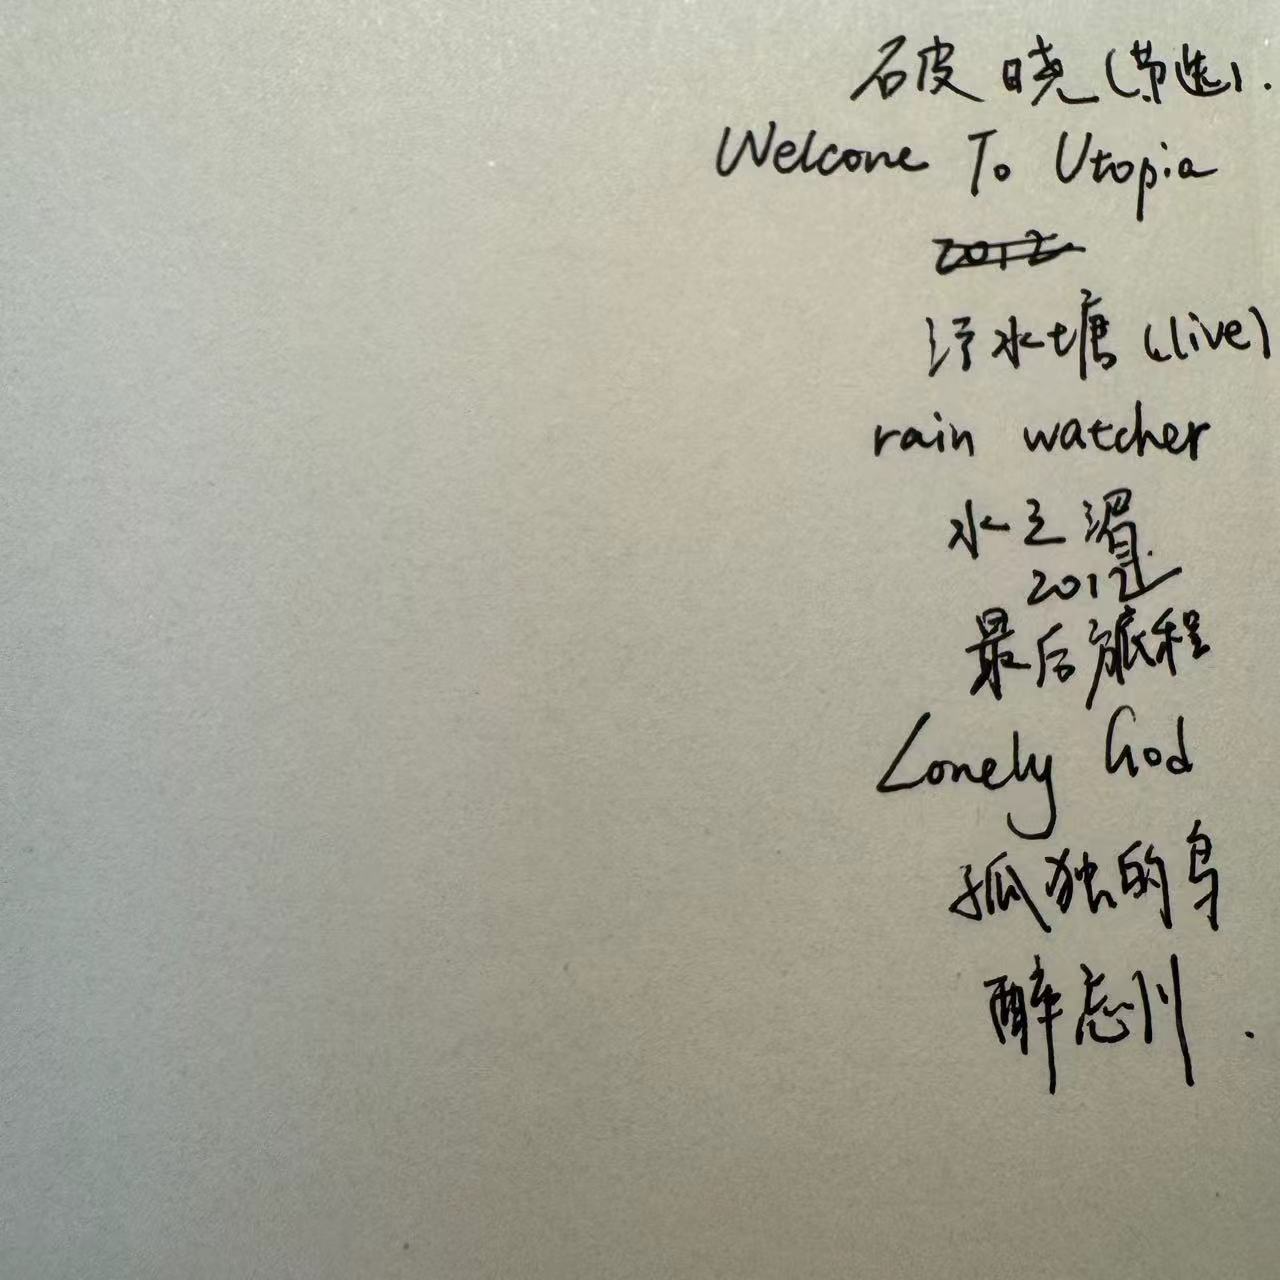 破晓(节选).
Welcome To Utopia
2012
污水塘(live)
rain watcher
水之湄.
2012
最后旅程
Lonely God
孤独的鸟
醉忘川.